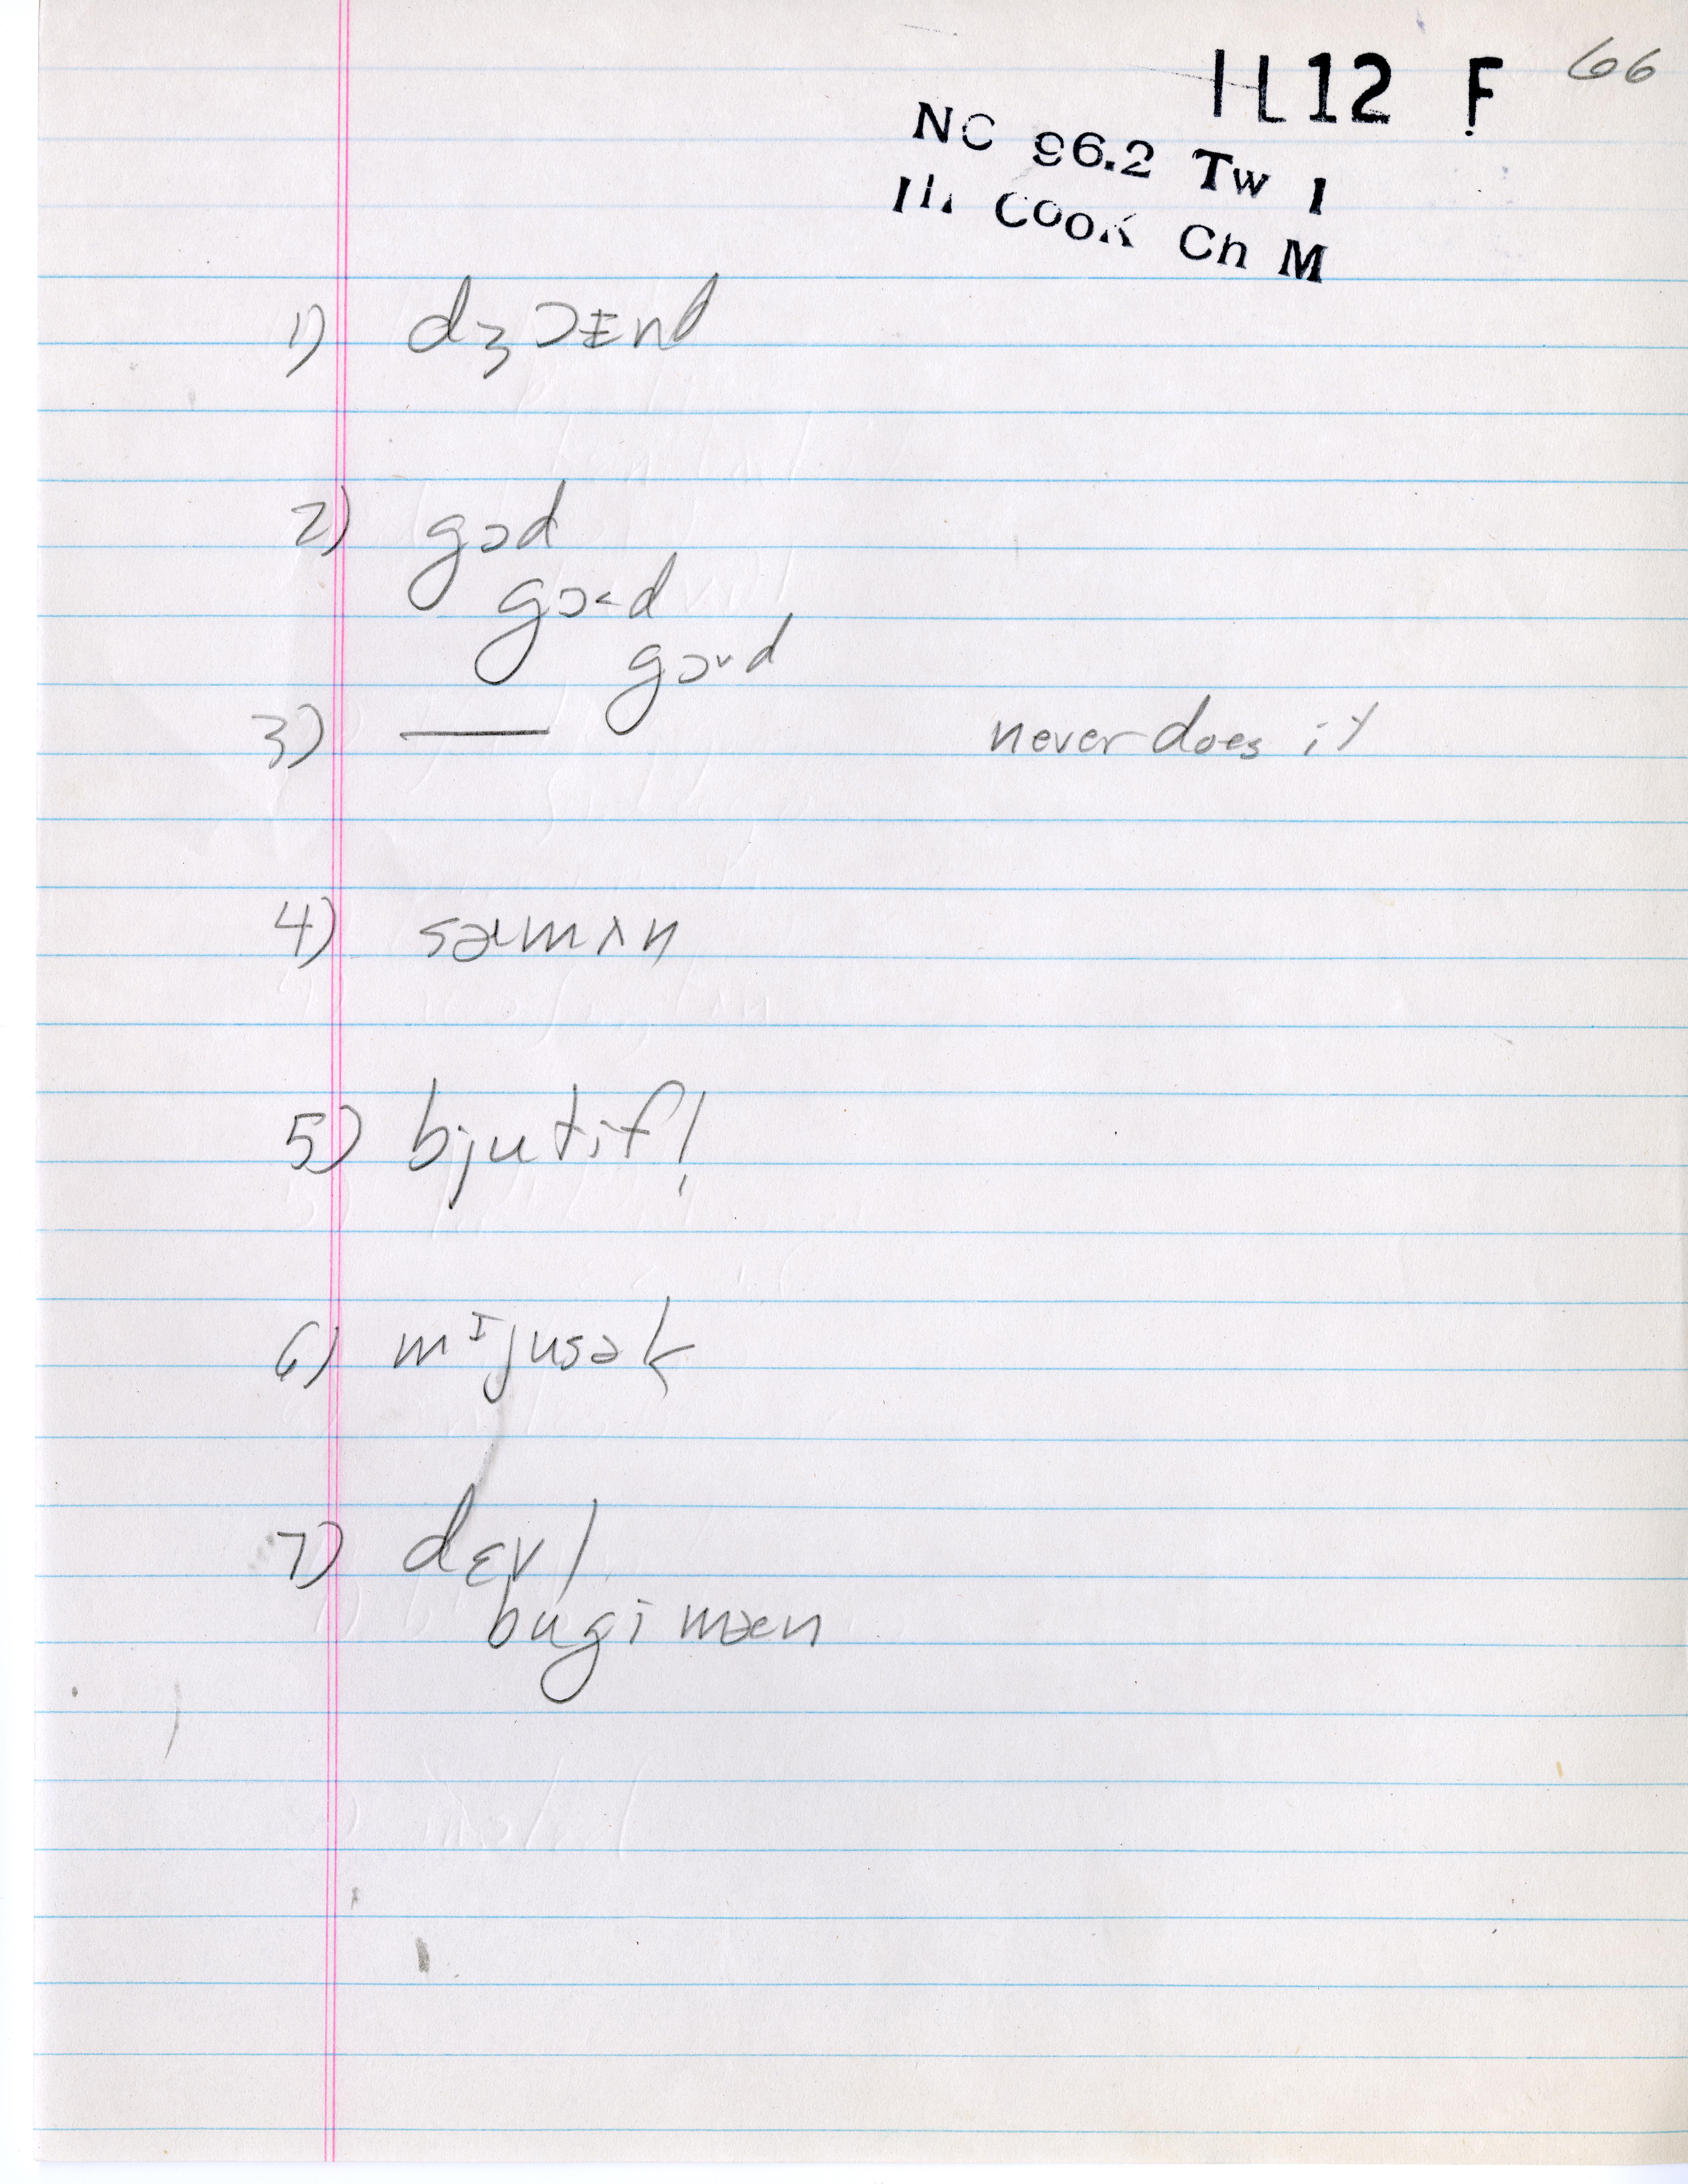 IL12 F 66
NC 96.2 Tw I
Ill Cook Ch M
1) dʒɔɪnd
2) gɔd
gɔ˂d
gɔ˅d
3) — never does it
4) sɚmʌn
5) bjutifl̩
6) mɪjusək
7) dɛvl
bugimæn